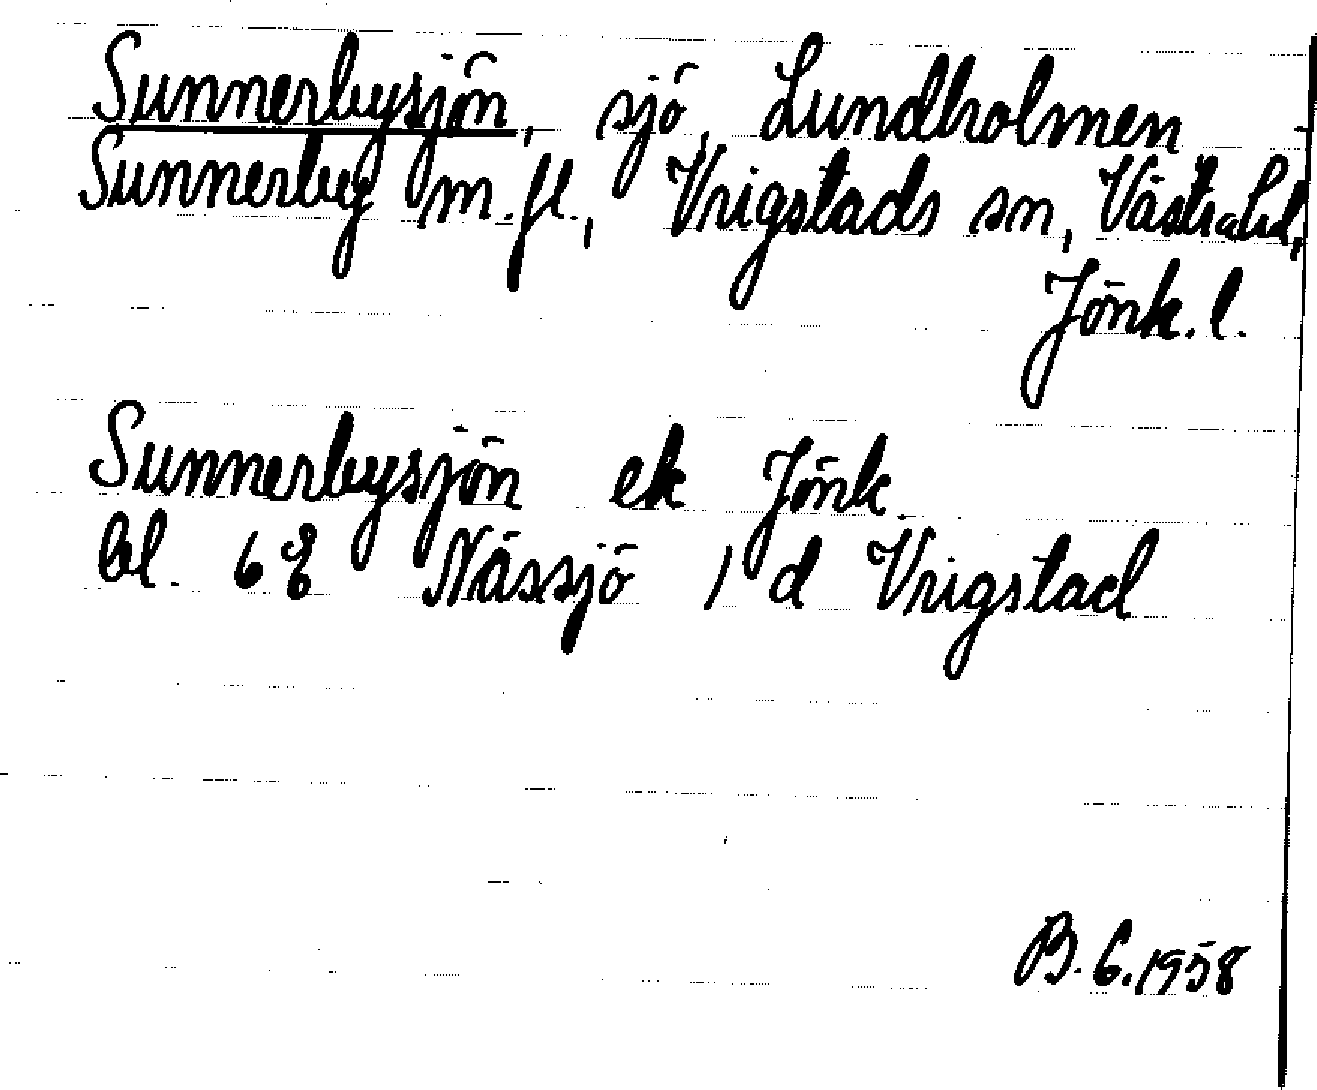 Sunnerbysjön, sjö, Lundholmen
Sunnerby m.fl., Vrigstads sn, Västra hd,
Jönk. l.
Sunnerbysjön ek Jönk
bl. 68 Nässjö / d Vrigstad
B. G. 1958